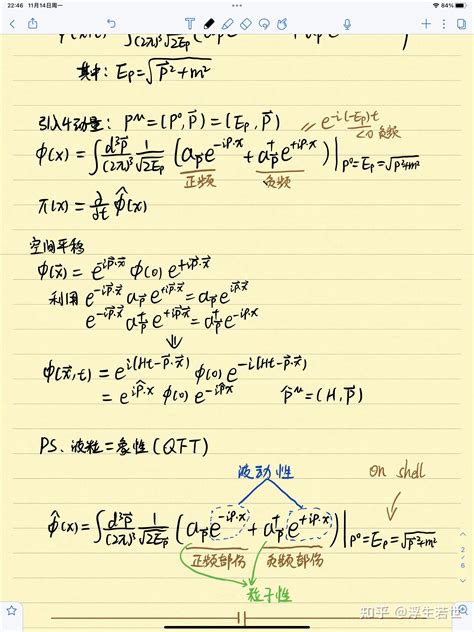 22:46 11月14日周一 84%
其中: E_p=√(p⃗²+m²)
引入4动量: P^μ=(P⁰,P⃗)=(E_p,P⃗)
e^{-i(-E_p)t}
<0 负频
φ(x)=∫d³p⃗/(2π)³ 1/√(2E_p) (a_p⃗ e^{-iP·x}+a†_p⃗ e^{+iP·x})|_{P⁰=E_p=√(p⃗²+m²)}
正频 负频
π(x)=∂/∂t φ̂(x)
空间平移
φ(x⃗)=e^{-iP̂·x⃗} φ(0) e^{+iP̂·x⃗}
利用 e^{-iP̂·x⃗} a_p⃗ e^{+iP̂·x⃗}=a_p⃗ e^{iP⃗·x⃗}
e^{-iP̂·x⃗} a†_p⃗ e^{+iP̂·x⃗}=a†_p⃗ e^{-iP·x}
⇓
φ(x⃗,t)=e^{i(Ht-P⃗·x⃗)} φ(0) e^{-i(Ht-P⃗·x⃗)}
=e^{iP̂·x} φ(0) e^{-iP̂·x} P̂^μ=(H,P⃗)
PS、波粒二象性(QFT)
波动性
on shell
φ̂(x)=∫d³p⃗/(2π)³ 1/√(2E_p) (a_p⃗ e^{-iP·x}+a†_p⃗ e^{+iP·x})|_{P⁰=E_p=√(p⃗²+m²)}
正频部份 负频部份
粒子性
2/6
知乎 @浮生若世